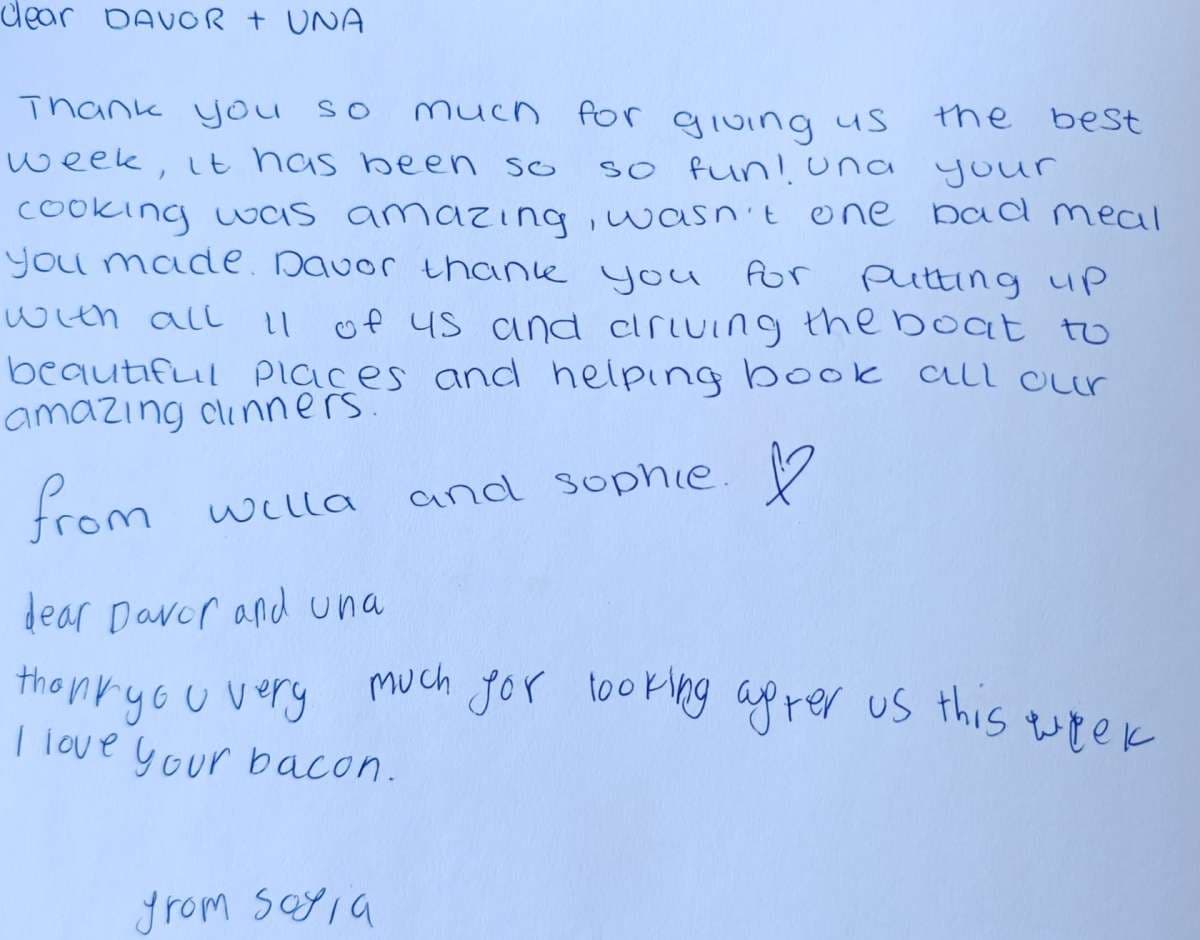 dear DAVOR + UNA
Thank you so much for giving us the best
week, it has been so so fun! Una your
cooking was amazing, wasn't one bad meal
you made. Davor thank you for putting up
with all 11 of us and driving the boat to
beautiful places and helping book all our
amazing dinners.
from willa and sophie. ♡
dear Davor and una
thank you very much for looking after us this week
I love your bacon.
from sofia